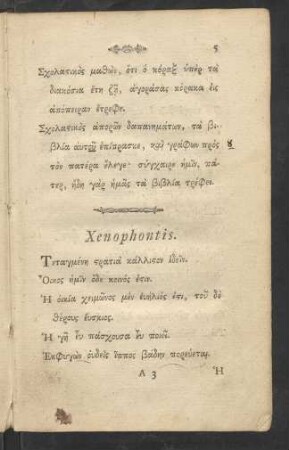 5
Σχολατικὸς μαθὼν, ὅτι ὁ κόραξ ὑπὲρ τὰ
διακόσια ἔτη ζῇ, ἀγοράσας κόρακα εἰς
ἀπόπειραν ἔτρεφε.
Σχολατικὸς ἀπορῶν δαπανημάτων, τὰ βι-
βλία αὐτοῦ ἐπίπρασκε, καὶ γράφων πρὸς
τὸν πατέρα ἔλεγε· σύγχαιρε ἡμῖν, πά-
τερ, ἤδη γὰρ ἡμᾶς τὰ βιβλία τρέφει.
Xenophontis.
Τεταγμένη στρατιὰ κάλλιστον ἰδεῖν.
Ὁ οἶκος ἡμῖν ὅδε κοινός ἐστιν.
Ἡ οἰκία χειμῶνος μὲν εὐήλιός ἐστι, τοῦ δὲ
θέρους εὔσκιος.
Ἡ γῆ εὖ πάσχουσα εὖ ποιεῖ.
Ἐκφυγὼν οὐδεὶς ἵππος βάδην πορεύεται.
A 3 Ἡ